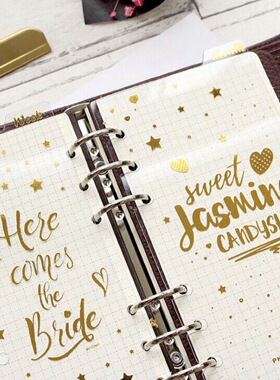 Week
Here
comes
the
Bride
sweet
Jasmin
CANDYS